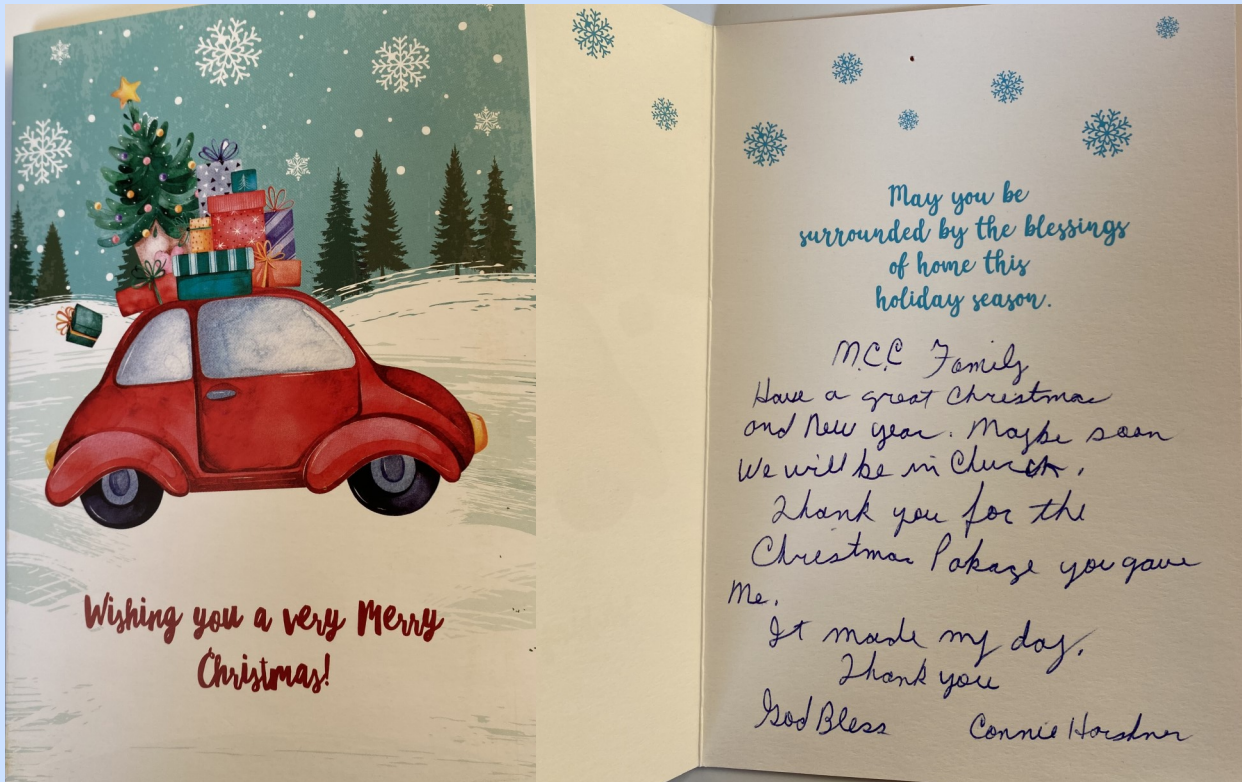 Wishing you a very Merry
Christmas!
May you be
surrounded by the blessings
of home this
holiday season.
M.C.C Family
Have a great Christmas
and New year. Maybe soon
We will be in Church.
Thank you for the
Christmas Pakage you gave
Me.
It made my day.
Thank you
God Bless Connie